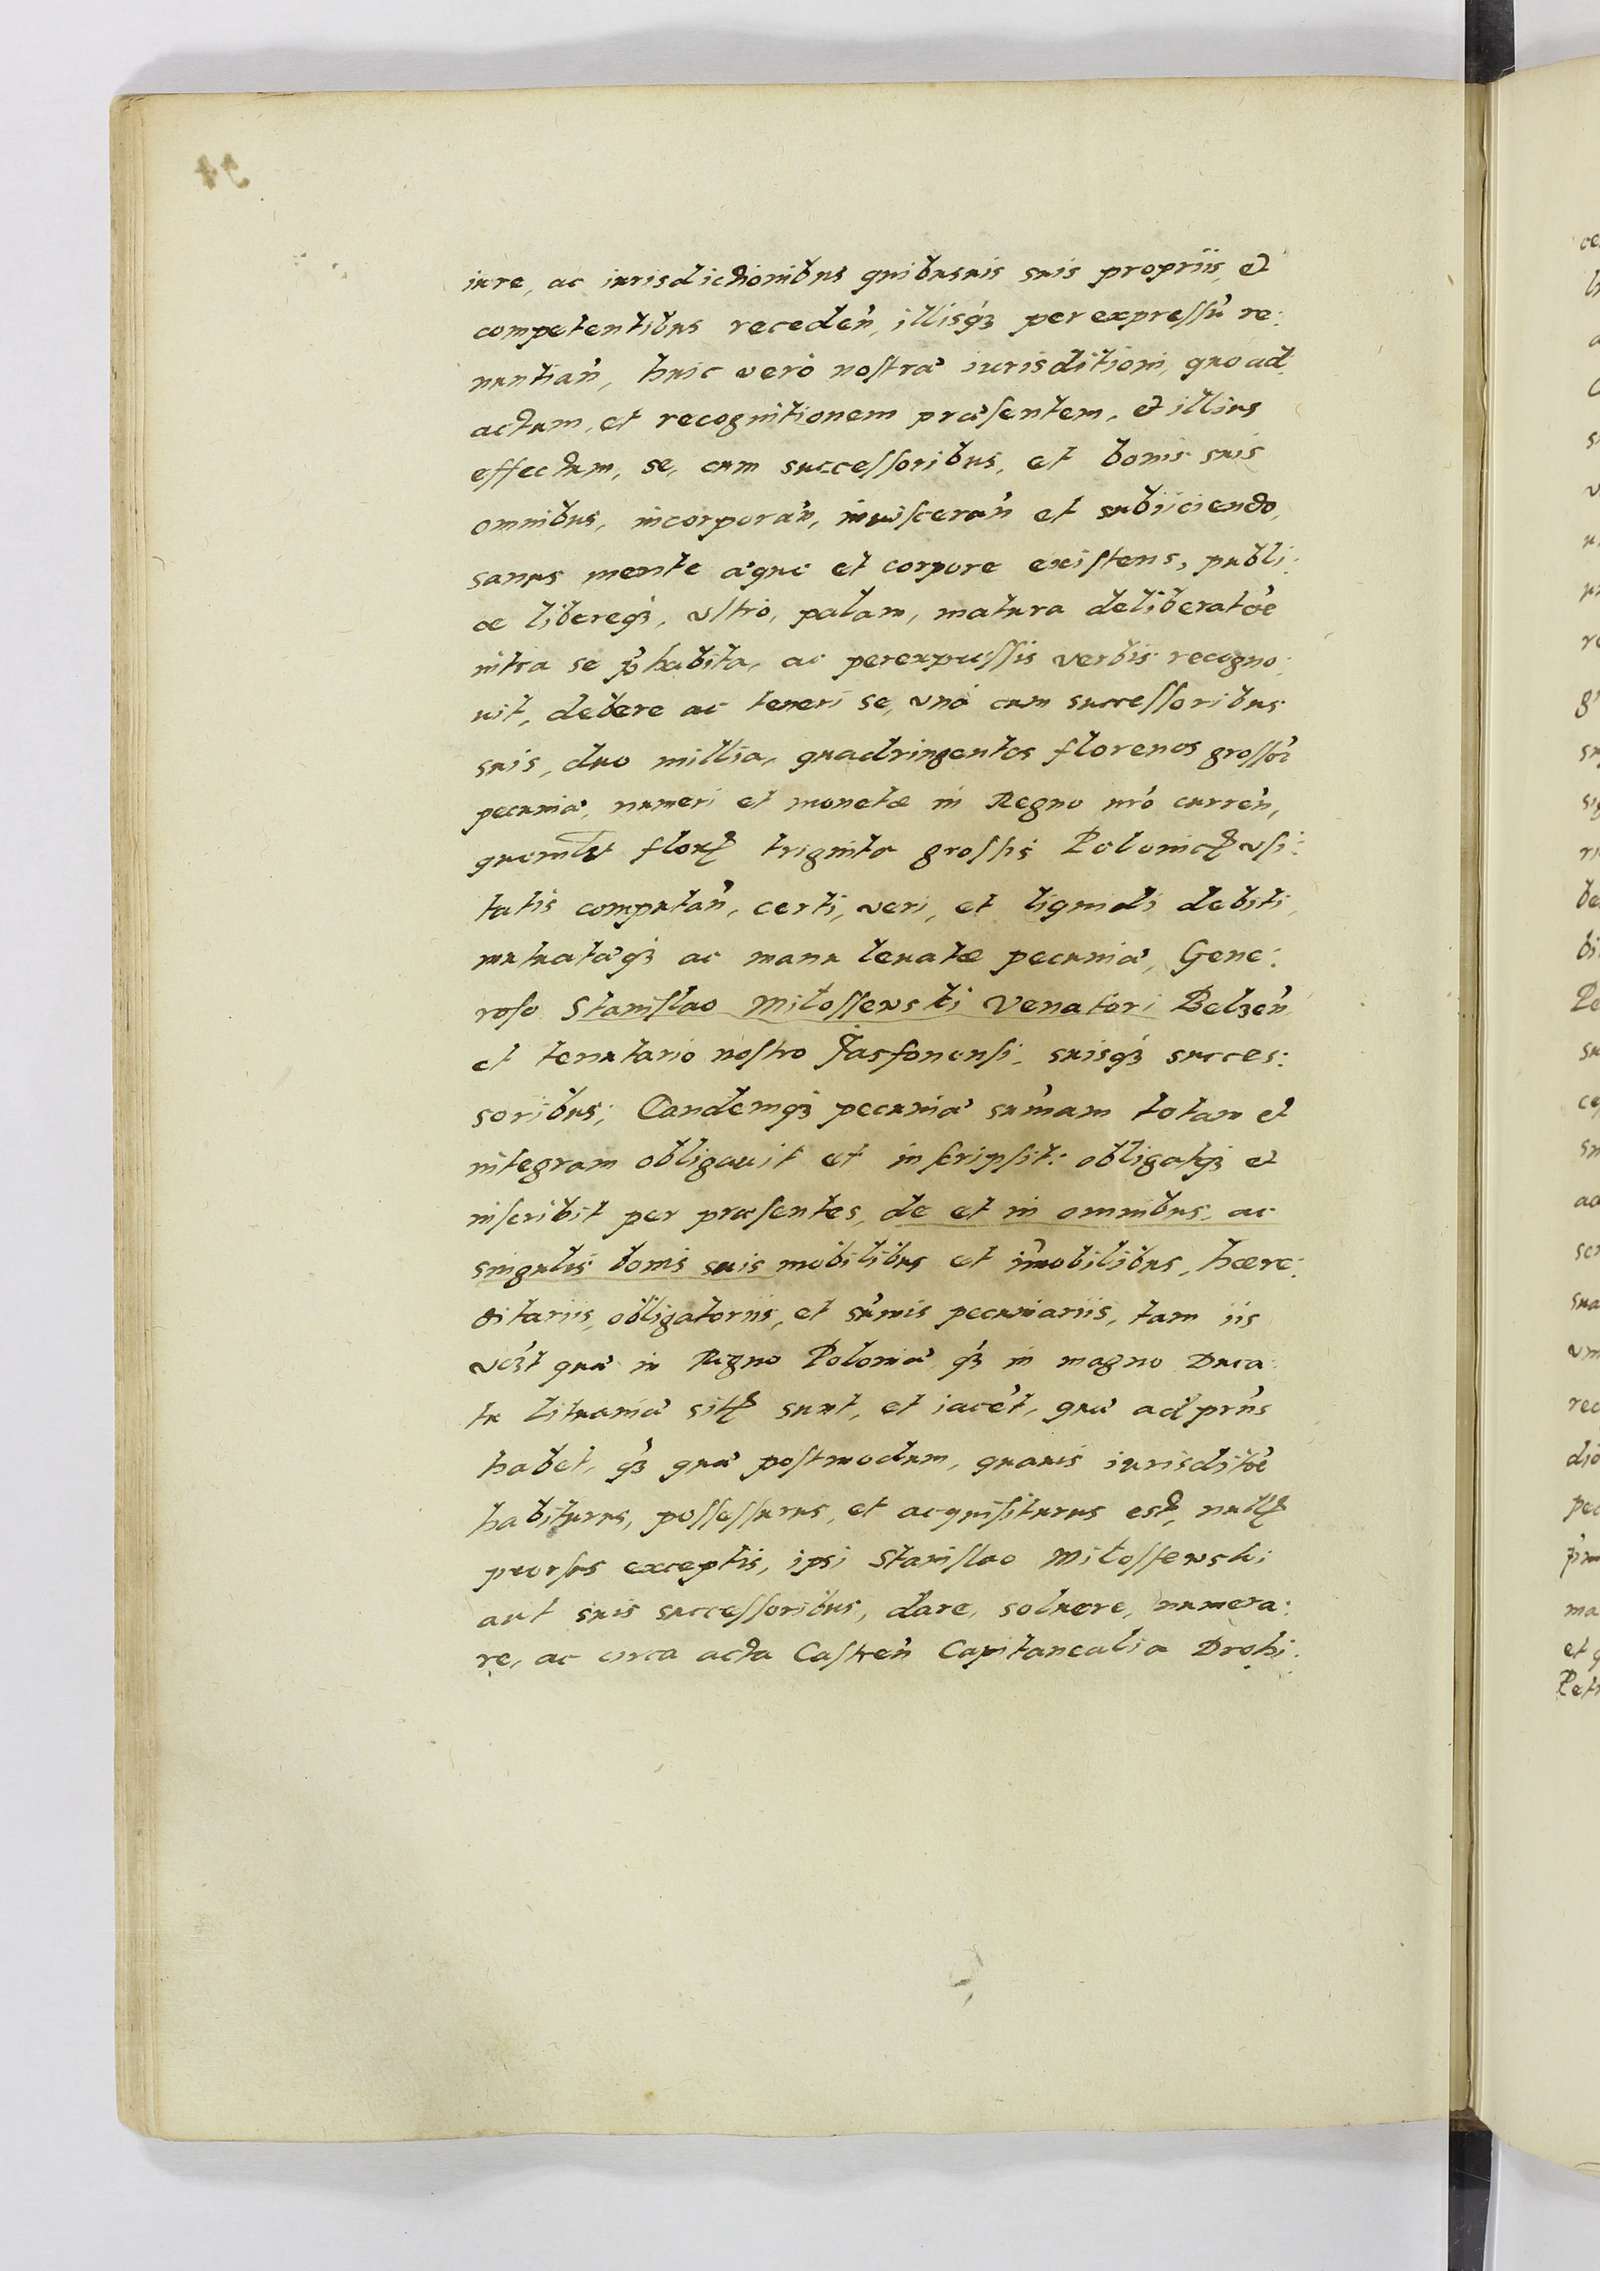 iure, ac iurisdictionibus quibusuis suis propriis, et
competentibus receden̄, illisq₃ per expressū re:
nuntian̄, huic verò nostræ iurisditioni, quo ad
actum, et recognitionem præsentem, et illius
effectum, se, cum successoribus, et bonis suis
omnibus, incorporan̄, inuisceran̄ et subiiciendo,
sanus mente æque et corpore existens, publi:
ce libereq₃, vltrò, palam, matura deliberatōe
intra se p̄habita, ac per expressis verbis recogno:
uit, debere ac teneri se, vnà cum successoribus
suis, duo millia, quadringentos florenos grossōr
pecuniæ, numeri et monetæ in Regno nr̄o curren̄,
quemlibet trigninta grossis Polonic vsi:
tatis computan̄, certi, veri, et liquidi debiti,
mutuatæq₃ ac manu leuatæ pecuniæ, Gene:
roso Stanislao Miłossewski Venatori Belzen̄
et tenutario nostro suisq₃ succes:
soribus; Eandemq₃ pecuniæ sum̄am totam et
integram obligauit et inscripsit: obligatq₃ et
inscribit per præsentes, de et in omnibus, ac
singulis bonis suis mobilibus et im̄obilibus, hære:
ditariis, obligatoriis, et sum̄is pecuniariis, tam iis
quæ in Regno Poloniæ q₃ in magno Duca
tu Lituaniæ sunt, et iacēt, quæ ad prn̄s
habet, q₃ quæ postmodum, quauis iurisditōe
habiturus, possessurus, et acquisiturus est,
prorsus exceptis, ipsi Stanislao Miłossewski
aut suis successoribus, dare, soluere, numera:
re, ac circa acta Castren̄ Capitanealia Drohi: